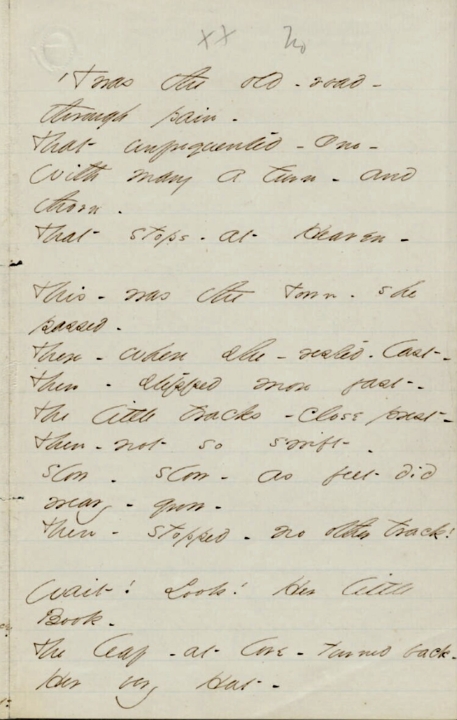 xx No
'Twas the old - road -
through pain -
That unfrequented - One -
With many a turn - and
thorn -
That stops - at Heaven -
This - was the Town - She
passed -
There - where she - rested - last -
Then - stepped more fast -
The little tracks - close prest -
Then - not so swift -
Slow - Slow - as feet did
weary - grow -
Then - stopped - no other track!
Wait! Look! Her little
Book -
The leaf - at love - turned back -
Her very Hat -